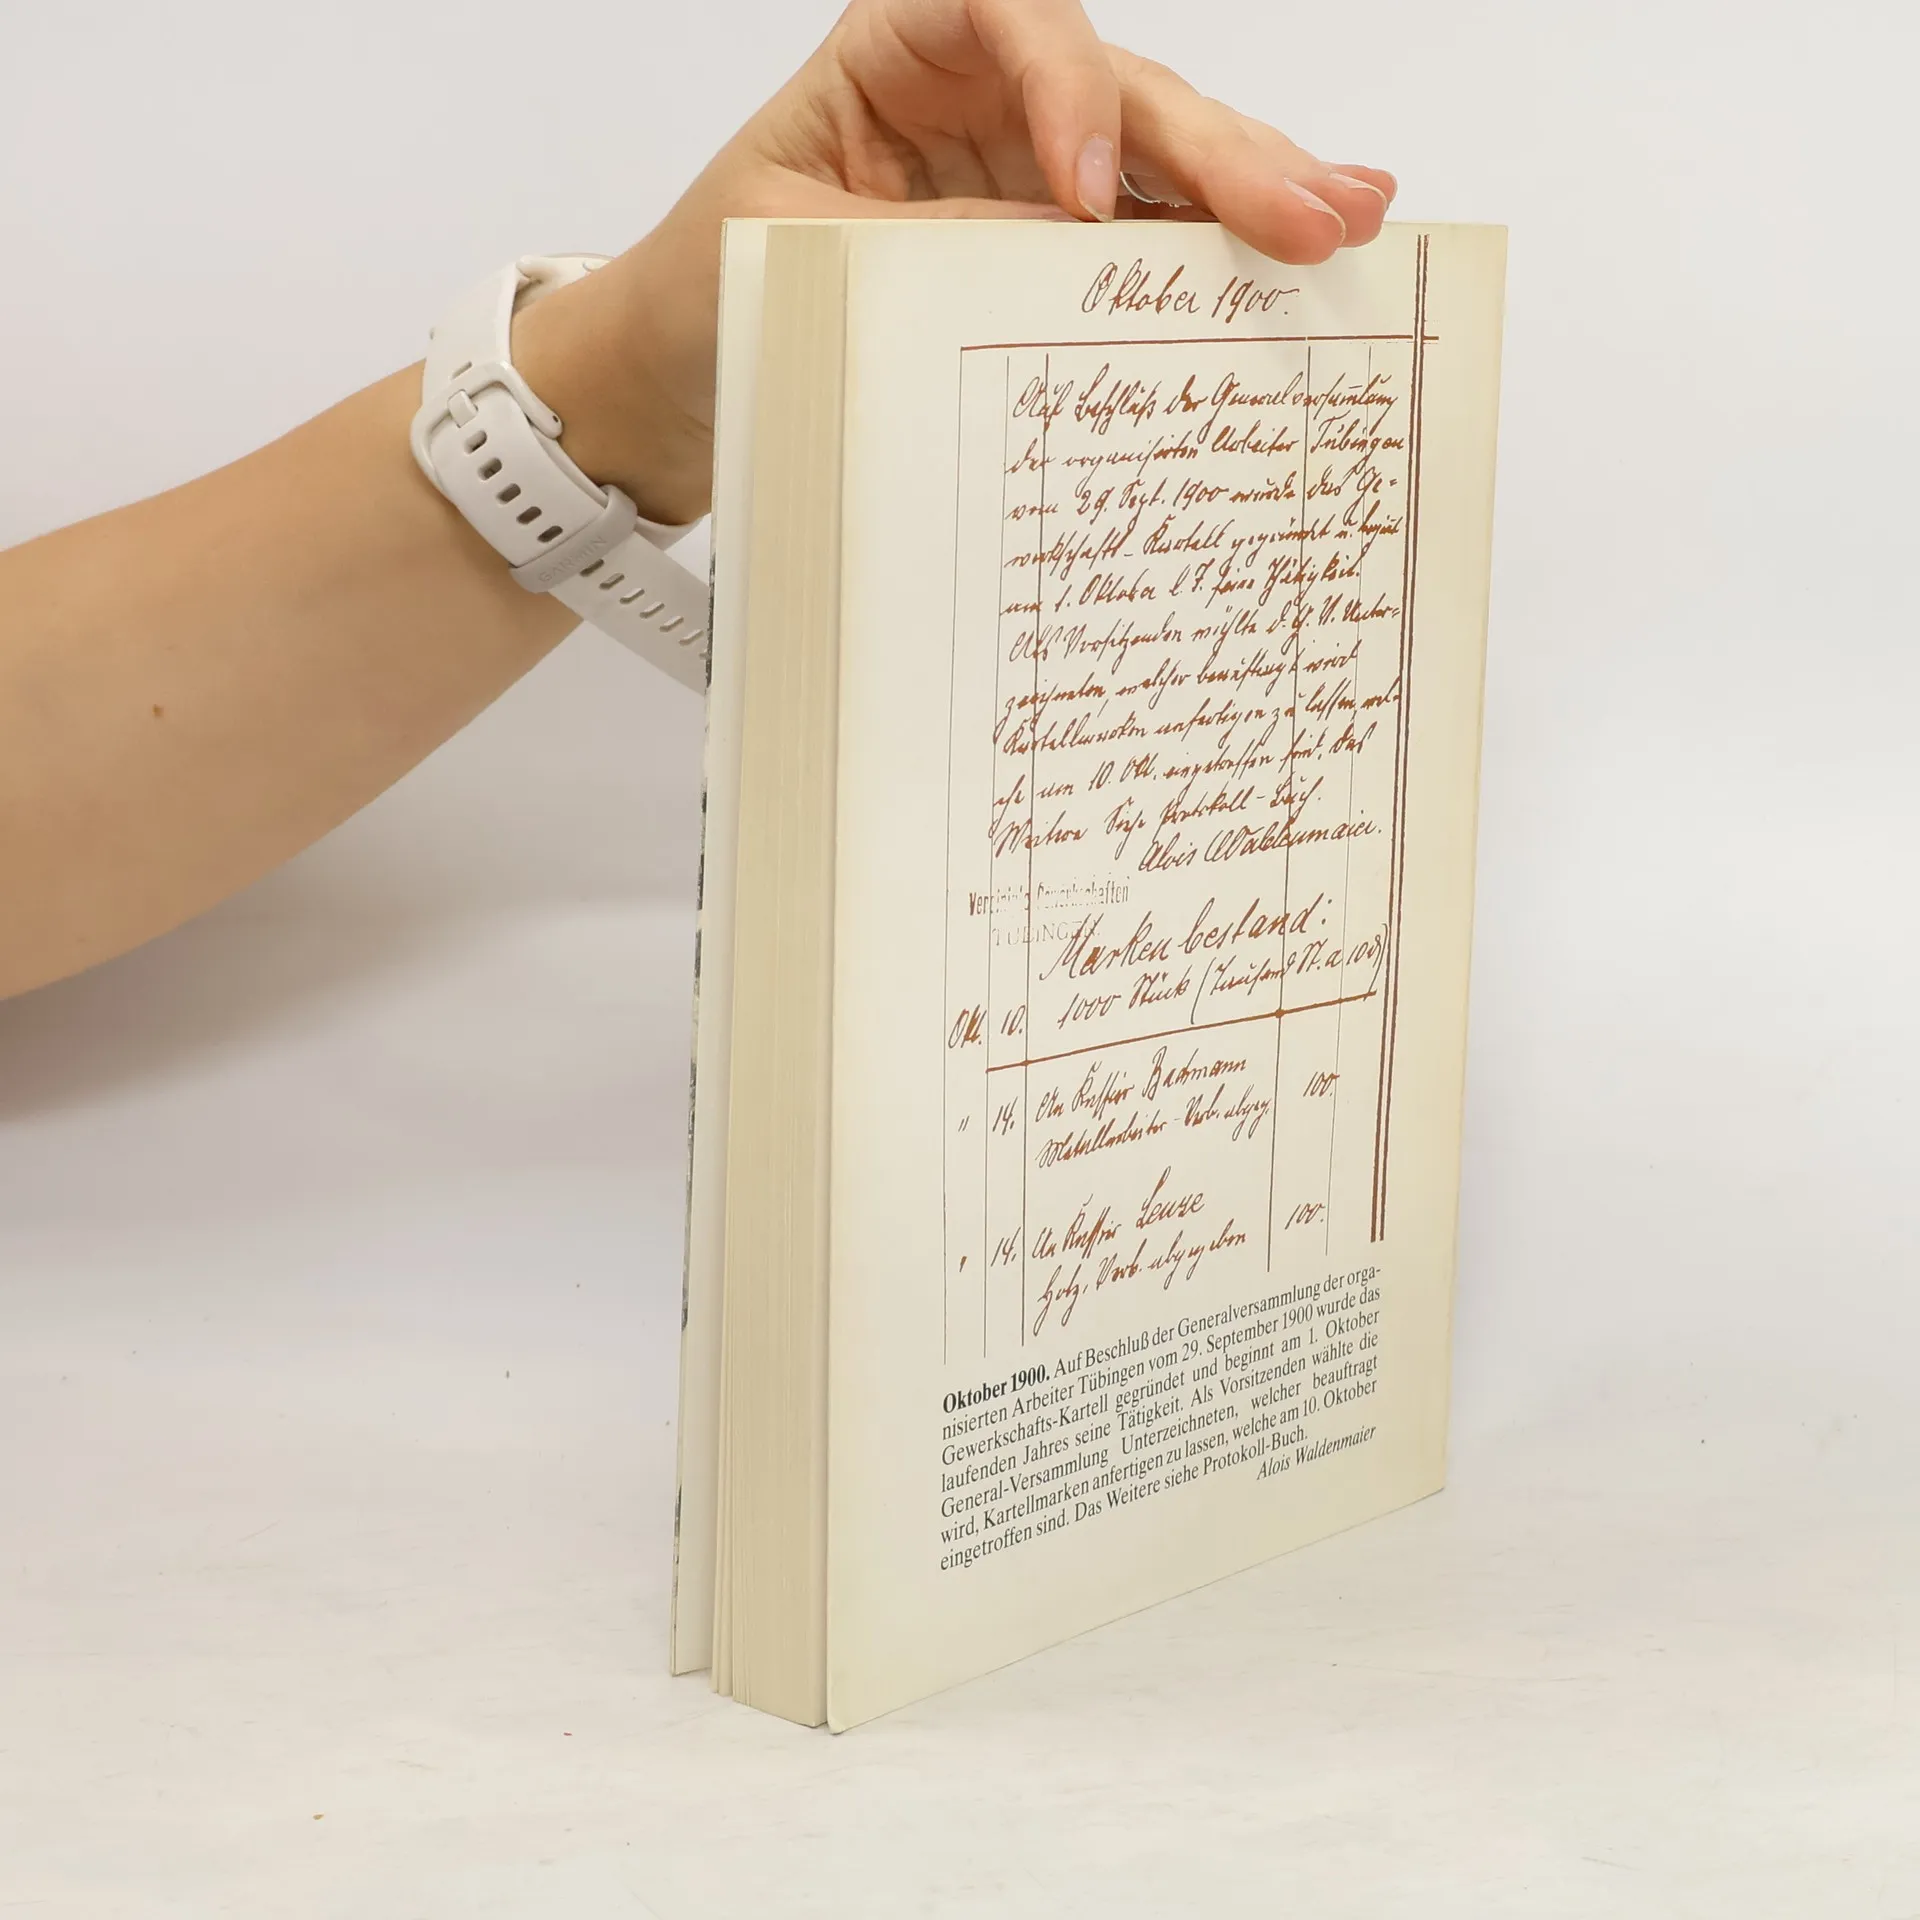 Oktober 1900.
Auf Beschluß der Generalversammlung
der organisirten Arbeiter Tübingen
vom 29. Sept. 1900 wurde das Ge=
werkschafts-Kartell gegründet u. beginnt
am 1. Oktober l. J. seine Thätigkeit.
Als Vorsitzenden wählte d. G. V. Unter=
zeichneten, welcher beauftragt wird
Kartellmarken anfertigen zu lassen, wel-
che am 10. Okt. eingetroffen sind. Das
Weitere Siehe Protokoll-Buch.
Alois Waldenmaier.
Vereinigte Gewerkschaften
TÜBINGEN.
Markenbestand:
Okt. 10. 1000 Stück (Tausend St. a 10 ₰)
" 14. An Kassier Bachmann 100.
Metallarbeiter-Verb. abgeg.
" 14. An Kassier Leuze 100.
Holz. Verb. abgegeben
Oktober 1900. Auf Beschluß der Generalversammlung der orga-
nisierten Arbeiter Tübingen vom 29. September 1900 wurde das
Gewerkschafts-Kartell gegründet und beginnt am 1. Oktober
laufenden Jahres seine Tätigkeit. Als Vorsitzenden wählte die
General-Versammlung Unterzeichneten, welcher beauftragt
wird, Kartellmarken anfertigen zu lassen, welche am 10. Oktober
eingetroffen sind. Das Weitere siehe Protokoll-Buch.
Alois Waldenmaier
GARMIN